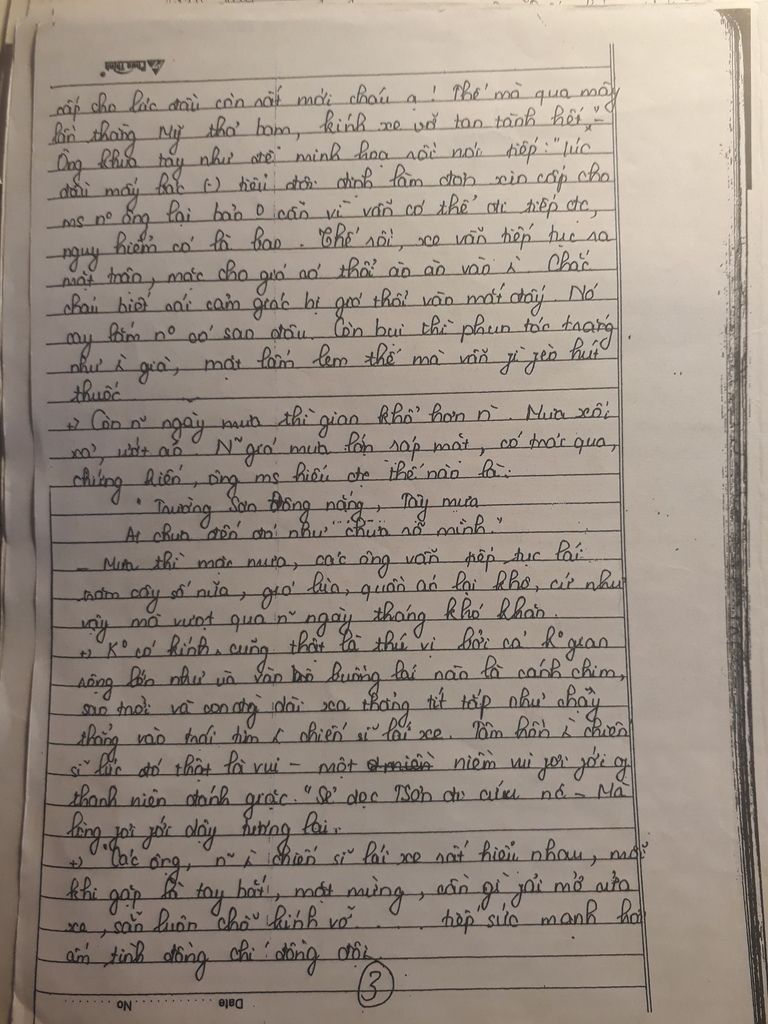 cấp cho lúc đầu còn rất mới cháu ạ! Thế mà qua mấy
lần thằng Mỹ thả bom, kính xe vỡ tan tành hết".-
Ông khua tay như để minh họa rồi nói tiếp: "lúc
đầu mấy bác (-) tiểu đội định làm đơn xin cấp cho
ms nº ông lại bảo 0 cần vì vẫn có thể đi tiếp đc,
nguy hiểm có là bao. Thế rồi, xe vẫn tiếp tục ra
mặt trận, mặc cho gió nó thổi ào ào vào Chắc
cháu biết cái cảm giác bị gió thổi vào mắt đấy. Nó
cay lắm nº có sao đâu. Còn bụi thì phun tóc trắng
như già, mặt lấm lem thế mà vẫn phì phèo hút
thuốc
+) Còn ngày mưa thì gian khổ hơn Mưa xối
xả, ướt áo. gió mưa lớn ráp mặt, có trải qua,
chứng kiến, ông ms hiểu đc thế nào là:
" Trường Sơn Đông nắng, Tây mưa
Ai chưa đến đó như chưa rõ mình."
- Mưa thì mặc mưa, các ông vẫn tiếp tục lái
trăm cây số nữa, gió lùa, quần áo lại khô, cứ như
vậy mà vượt qua ngày tháng khó khăn.
+) Kº có kính, cũng thật là thú vị bởi cả kº gian
rộng lớn như ùa vào buồng lái nào là cánh chim,
sao trời và con đg dài xa thẳng tít tắp như chạy
thẳng vào trái tim chiến sĩ lái xe. Tâm hồn chiến
sĩ lúc đó thật là vui - một niềm vui phơi phới of
thanh niên đánh giặc. "Sẻ dọc TSơn đi cứu nc - Mà
lòng phơi phới dậy tương lai.
+) Các ông, chiến sĩ lái xe rất hiểu nhau, mỗi
khi gặp là tay bắt, mặt mừng, cần gì phải mở cửa
xe, sẵn luôn chỗ kính vỡ ..... tiếp sức mạnh hơi
ấm tình đồng chí đồng đội.
3
Date No